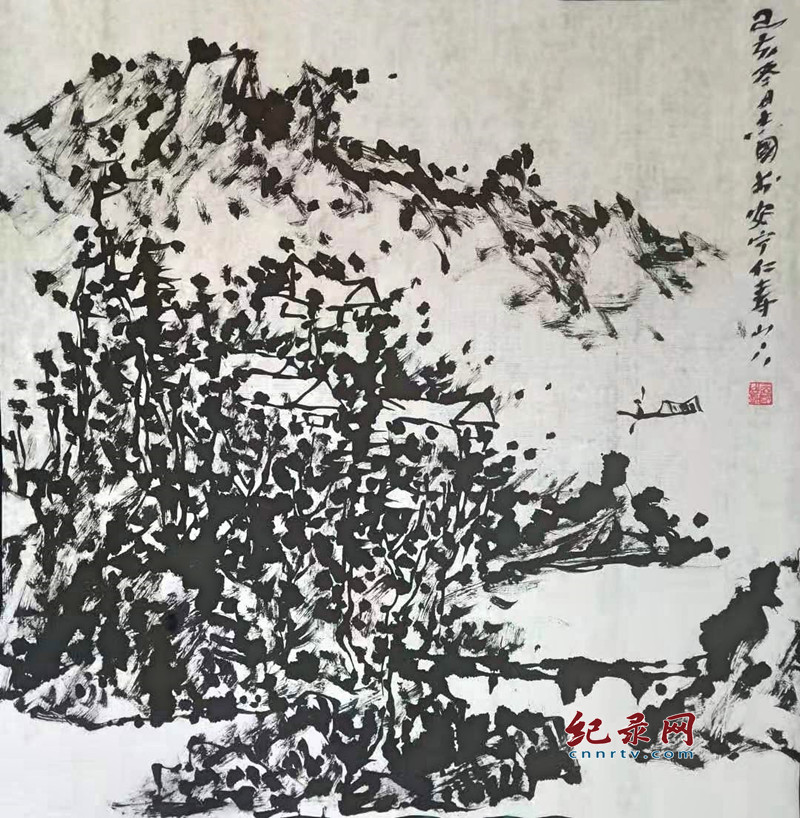 己亥冬日國於安宁仁寿山下
纪录网
cnnrtv.com